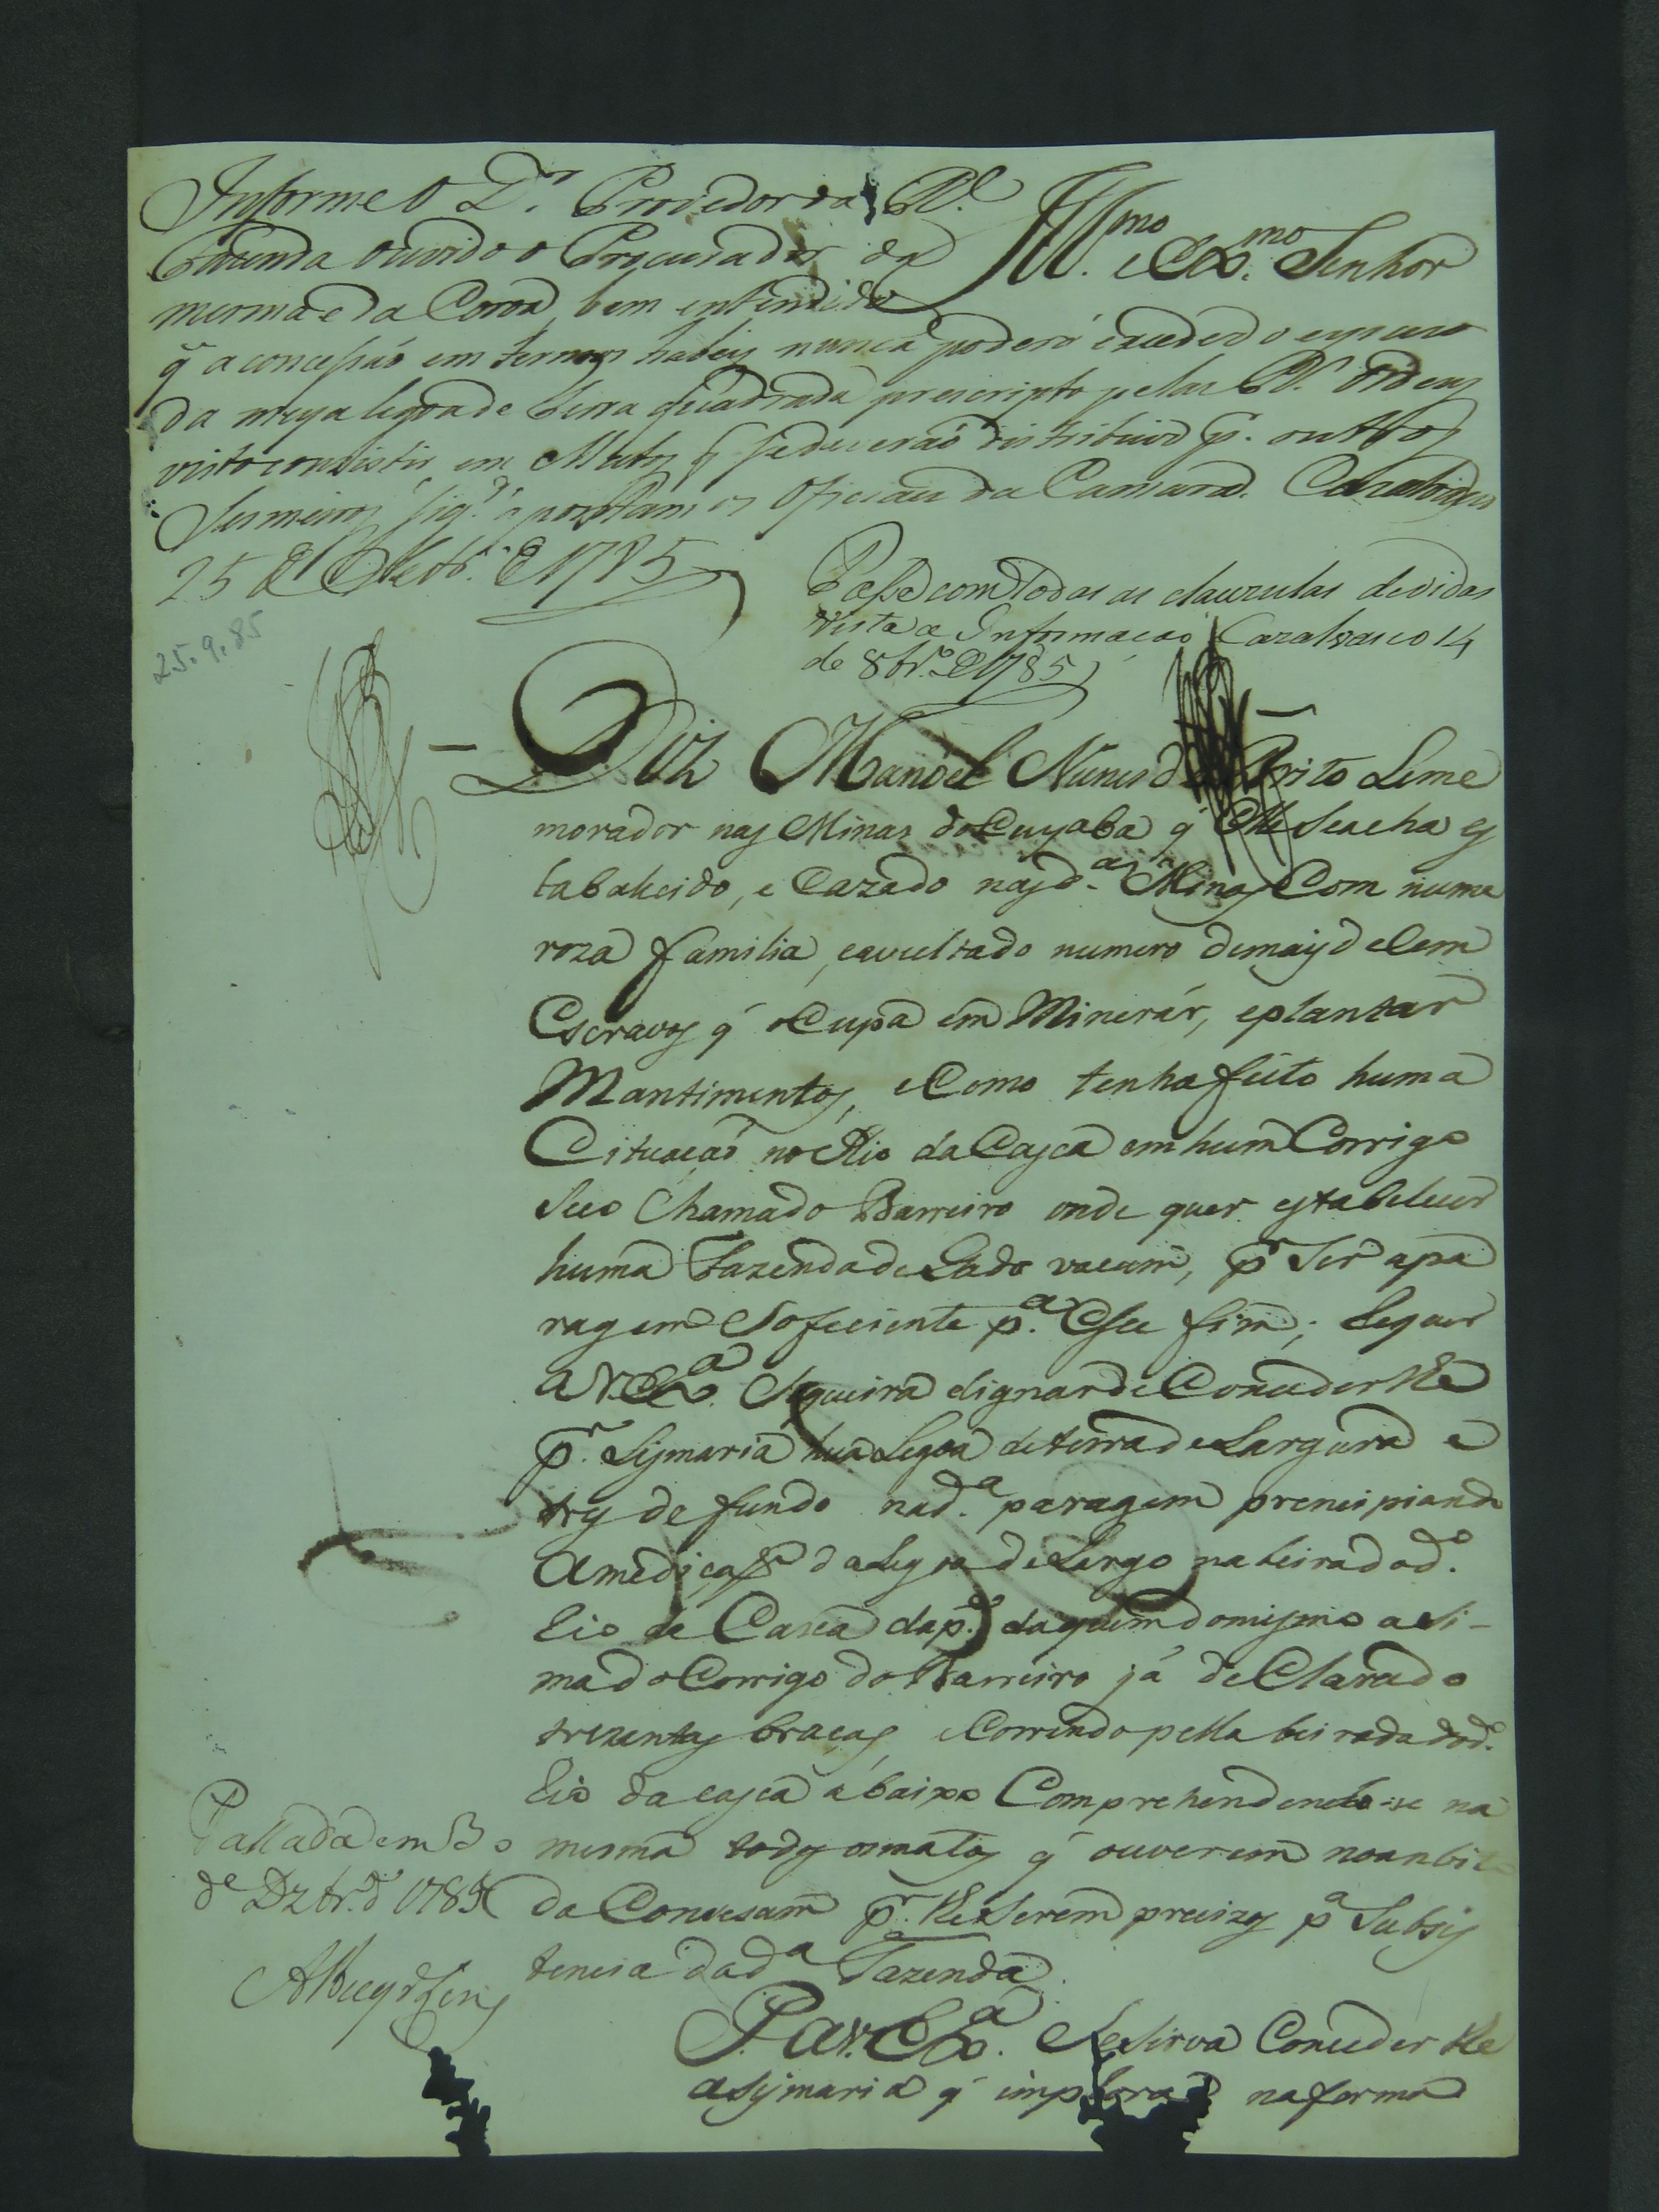 Informe o D.r Provedor da Rl.
Fazenda ouvido o Procurador da
mesma e da Coroa, bem entendido
q̃ a concessaõ em termos habeis nunca poderá exceder o espaço
da meya legoa de terra quadrada prescripto pelas R.s Ordens
visto consistir em Matos q̃ se deveraõ distribuir p. outros
Sesmeiros, apontam os Oficiaes da Camara. Cazalvasco
25 de 7br.o de 1785
Ill.mo e Ex.mo Senhor
Passe com todas as clauzulas devidas
vista a Informaçaõ Cazalvasco 14
de 8br.o de 1785
25.9.85
Diz Manoel Nunes de Brito Leme
morador nas Minas do Cuyaba q' Elle se acha es
tabalecido, e Cazado nas d.as Minas Com nume
roza familia, e avultado numero de mais de Cem
Escravos q' oCupa em Minerár, e plantar
Mantimentos, e Como tenha feito huma
Cituaçaõ no Rio da Casca em hum Corrigo
Seco Chamado Barreiro onde quer estabelecer
huma Fazenda de Gado vacum, p.r Ser apa
ragem Sofeciente p.a Esse fim; Requer
a V. Ex.a Sequeira dignar de Conceder lhe
p.r Sismaria huã Legoa de terra de Largura e
tres de fundo na d.a paragem prencipiando
a mediçaõ da Legoa de Largo na beira do d.o
Rio da Casca da p.te daquem do mismo asi-
ma do Corrigo do Barreiro já deClarado
trezentas braças, e Correndo pella beirada do d.o
Rio da casca abaixo Comprehendendo-se na
mesma todos os matos q' ouverem no anbito
da Concesam p.r lhe Serem precizos p.a Subsis
tencia da d.a Fazenda.
P. a V. Ex.a Se Sirva Conceder lhe
a Sismaria q' implora na forma
Passada em 30
de Dzbr.o d' 1785